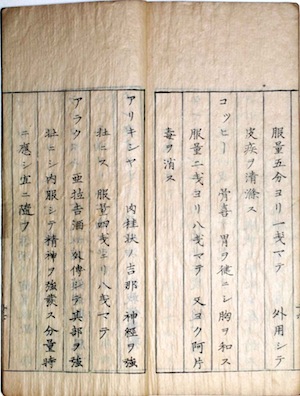 服量五分ヨリ一戔マテ 外用シテ
皮疾ヲ清滌ス
コッヒー 骨喜 胃ヲ健ニシ胸ヲ和ス
服量二戔ヨリ八戔マテ 又ヨク阿片
毒ヲ消ス
アリキシヤ 肉桂状 吉那 神経ヲ強
壮ニス 服量四戔ヨリ八戔マテ
アラク 亜拉吉酒 外傅シテ其部ヲ強
壮ニシ内服シテ精神ヲ強 ス 分量時
ニ應シ宜ニ随フ